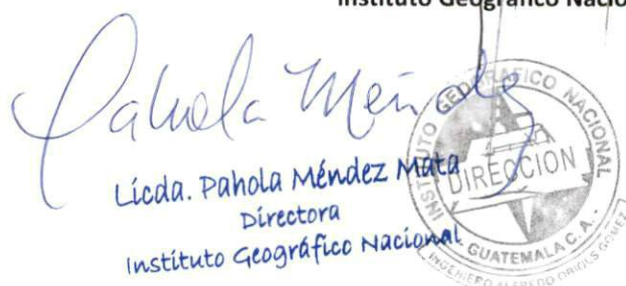 Instituto Geográfico Nacio
Pahola Méndez
Licda. Pahola Méndez Mata
Directora
Instituto Geográfico Nacional
INSTITUTO GEOGRAFICO NACIONAL
DIRECCION
GUATEMALA C.A.
INGENIERO ALFREDO OBIOLS GOMEZ